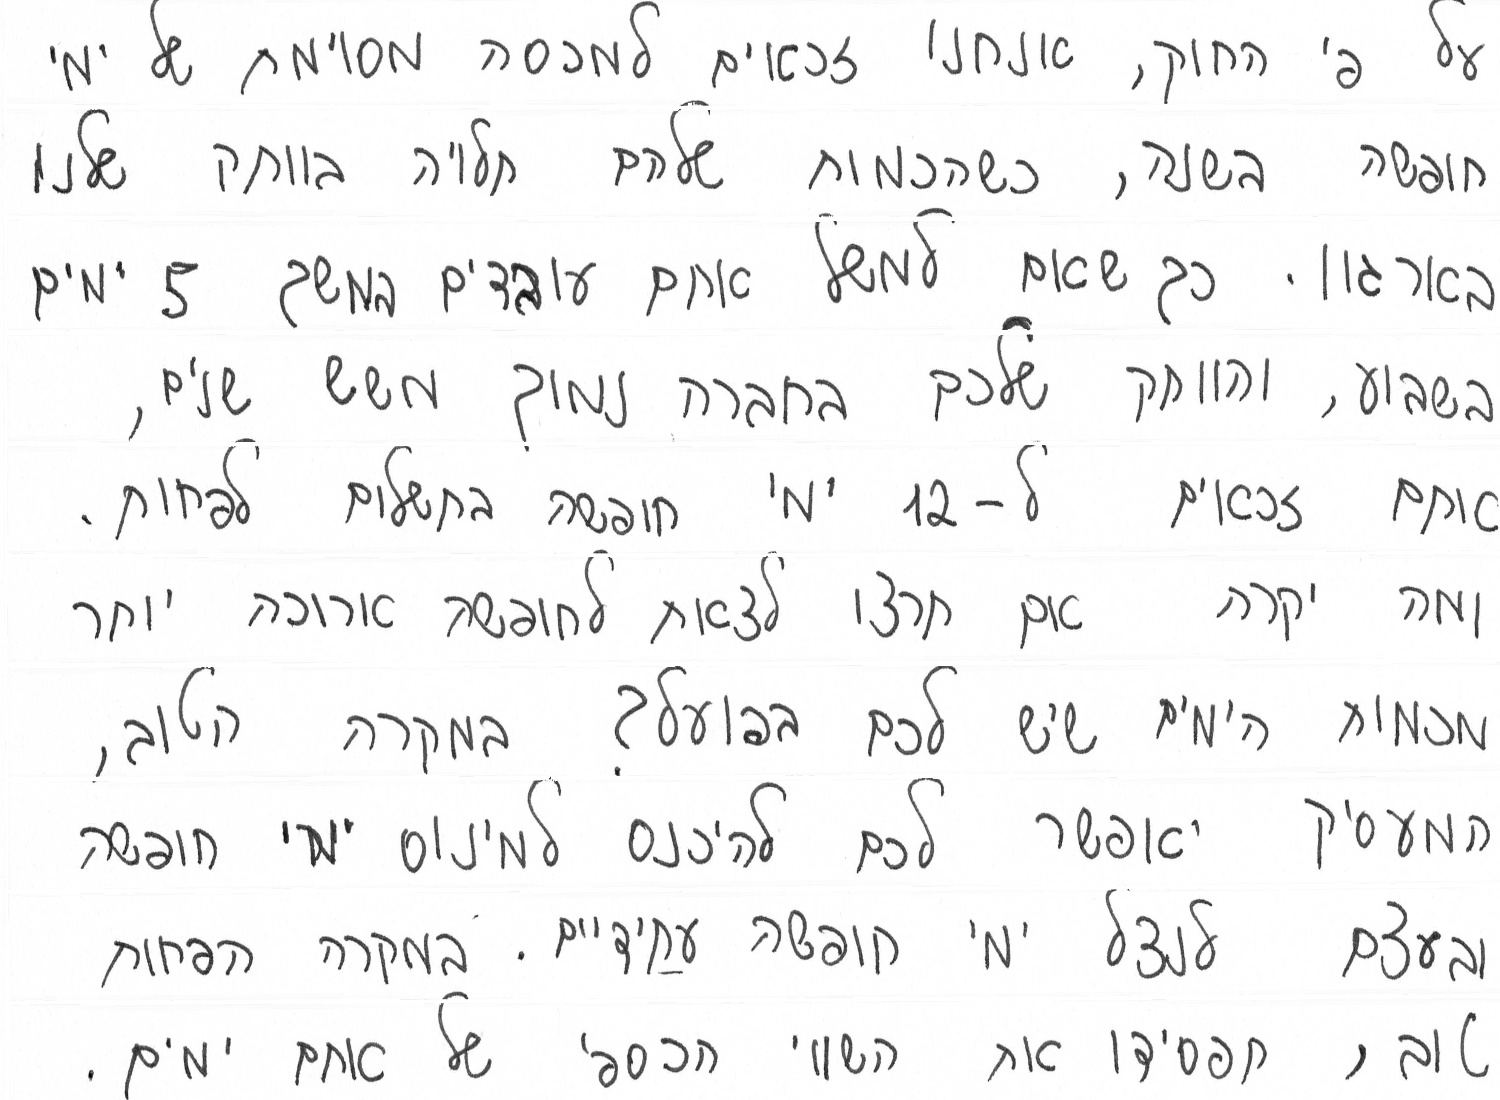 על פי החוק, אנחנו זכאים למכסה מסוימת של ימי
חופשה בשנה, כשהכמות שלהם תלויה בוותק שלנו
בארגון. כך שאם למשל אתם עובדים במשך 5 ימים
בשבוע, והוותק שלכם בחברה נמוך משש שנים,
אתם זכאים ל-12 ימי חופשה בתשלום לפחות.
ומה יקרה אם תרצו לצאת לחופשה ארוכה יותר
מכמות הימים שיש לכם בפועל? במקרה הטוב,
המעסיק יאפשר לכם להיכנס למינוס ימי חופשה
ובעצם לנצל ימי חופשה עתידיים. במקרה הפחות
טוב, תפסידו את השווי הכספי של אותם ימים.